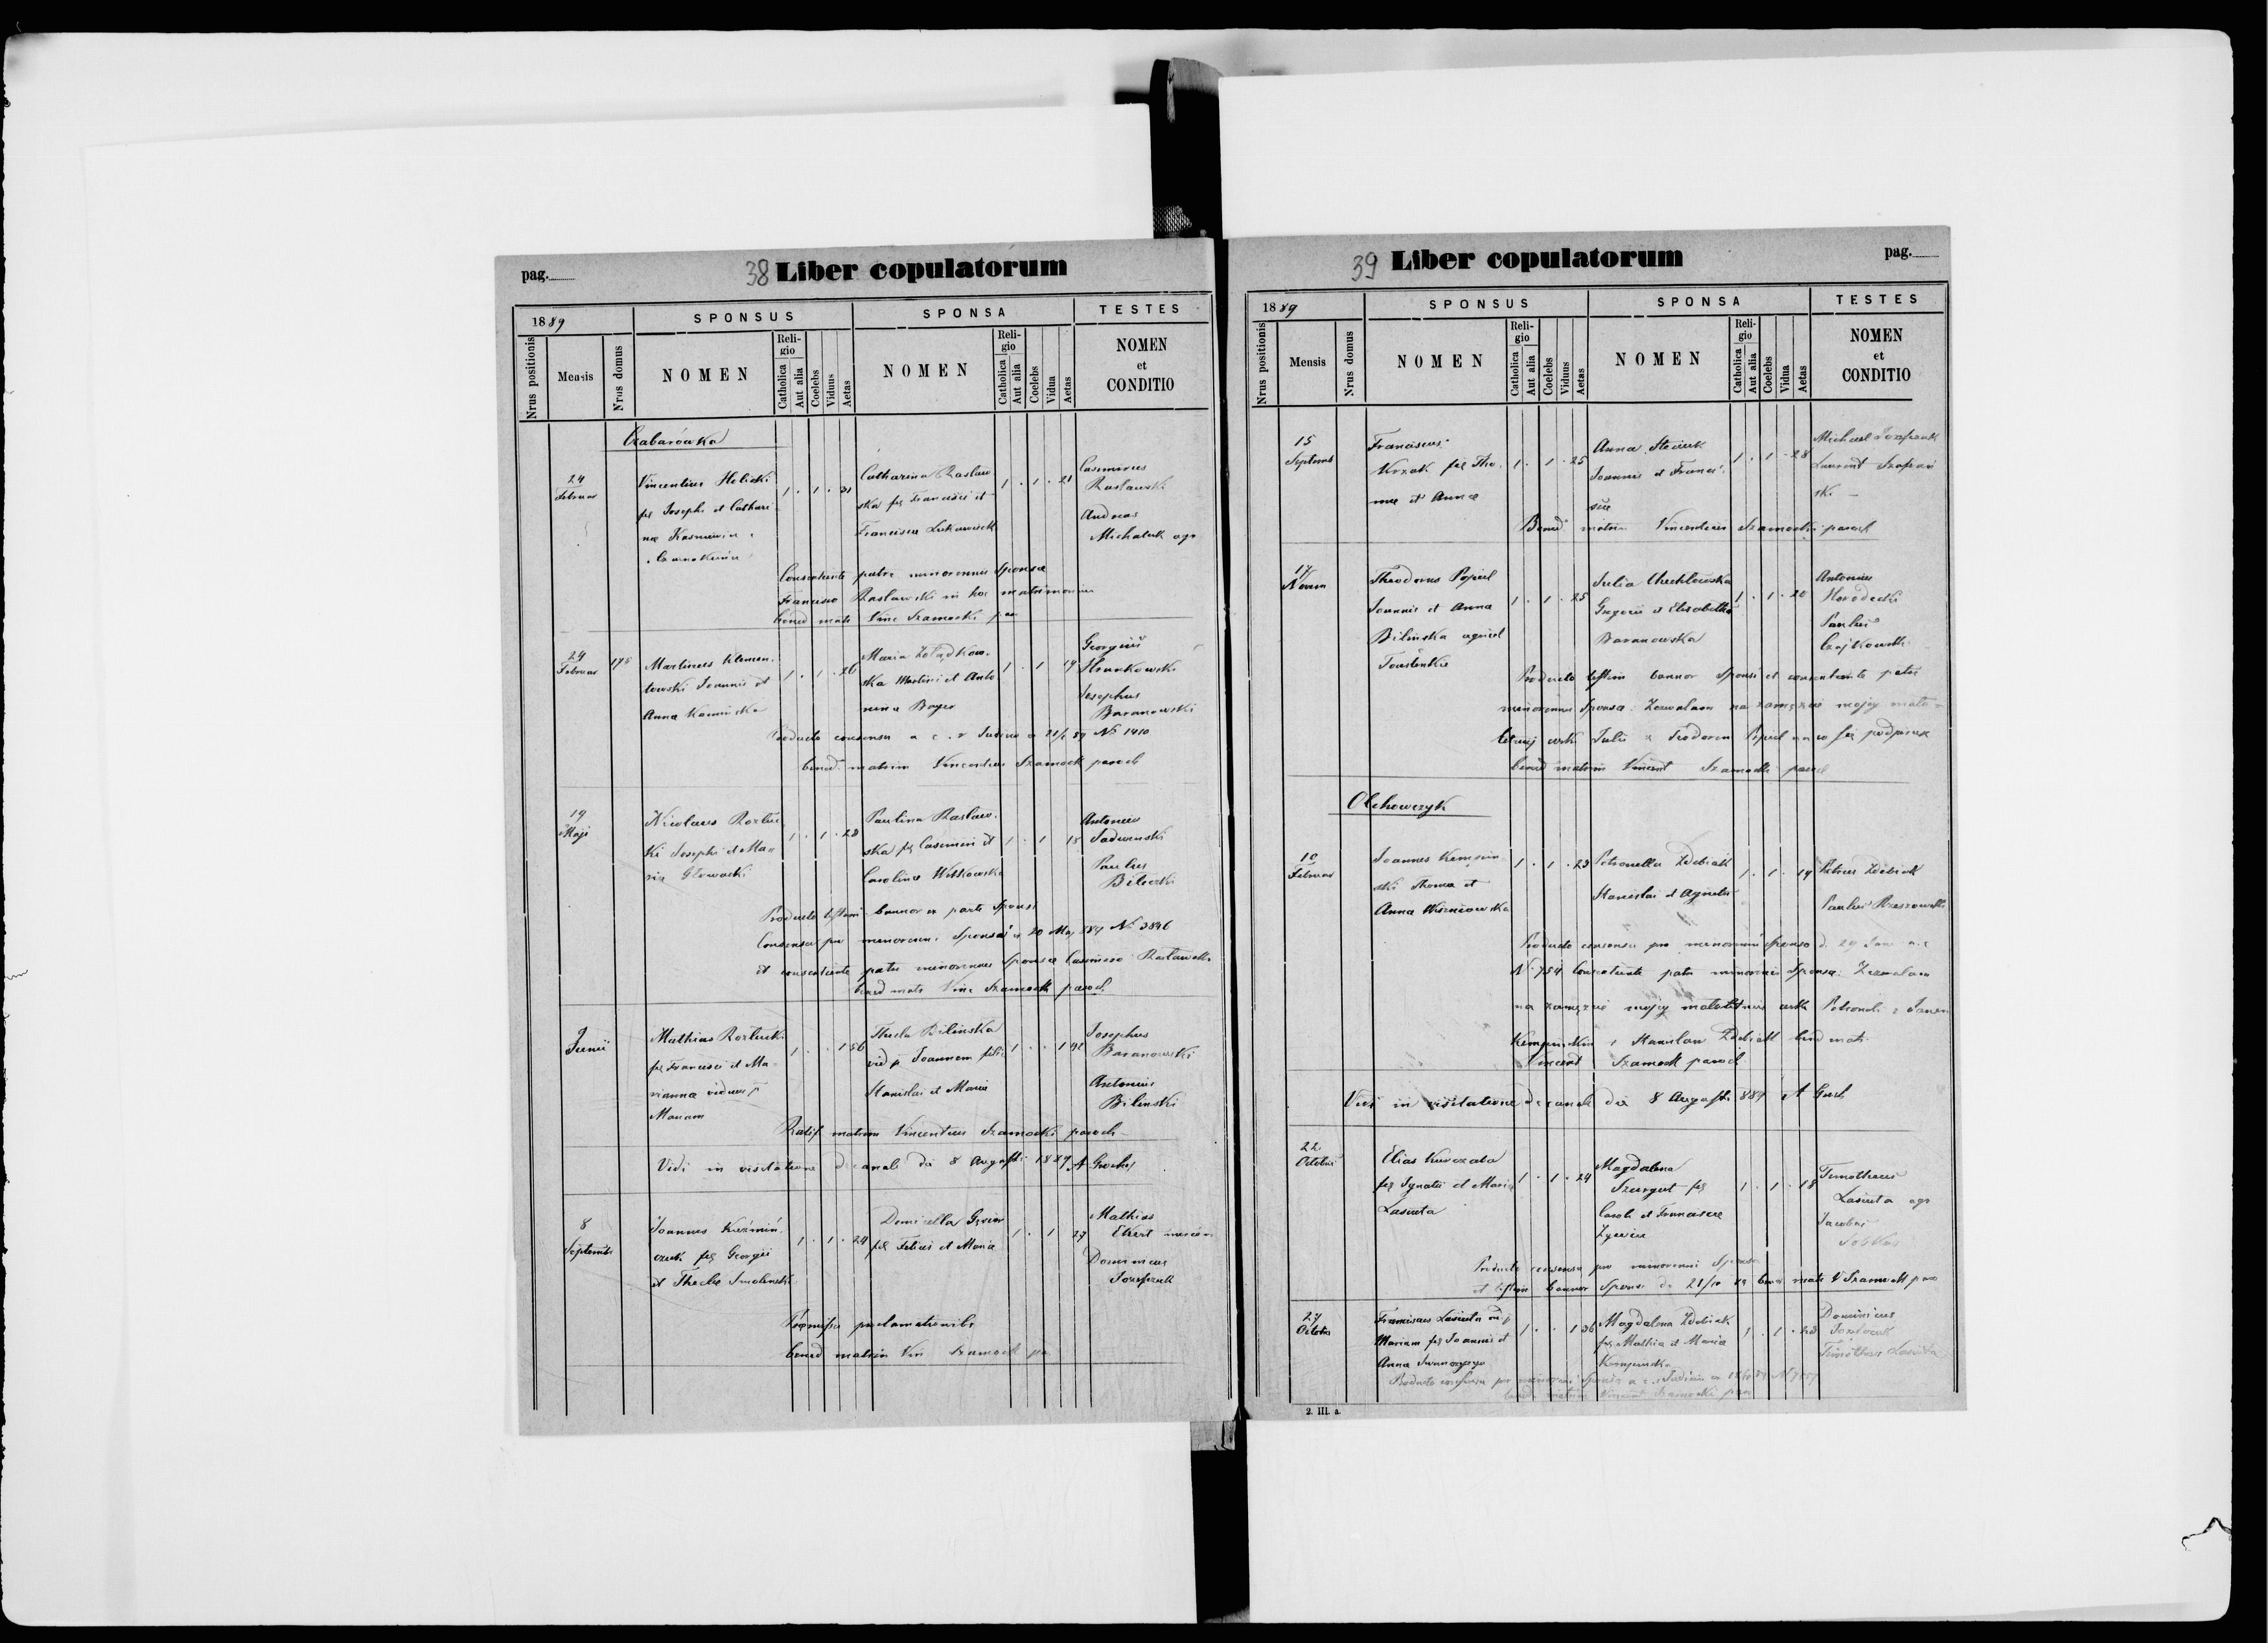 pag.
38 Liber copulatorum
1889
SPONSUS
SPONSA
TESTES
Nrus positionis
Mensis
Nrus domus
NOMEN
Religio
Catholica
Aut alia
Coelebs
Viduus
Aetas
NOMEN
Religio
Catholica
Aut alia
Coelebs
Vidua
Aetas
NOMEN
et
CONDITIO
Czabarówka
24
Februar
Vincentius Holicki
fil Josephi et Cathari
nae
1 . 1 . 31
Catharina Raslaw
ska fil Francisci et
Francisca
1 . 1 . 21
Casimirus
Raslawski
Andreas
Michaluk agr
Consentiente patre minorennis Sponsae
Francisco Raslawski in hoc matrimonium
bened matr Vinc Szamocki par
24
Februar
175
Martinus Klemen
towski Joannis et
Anna Kaminska
1 . 1 . 26
Maria Zolądkow
ska Martini et Anto
nina Bayer
1 . 1 19
Georgius
Josephus
Baranowski
Producto consensu
No 1410
bened matrim Vincentius Szamocki paroch
19
Maji
Nicolaus Rozluc
ki Josephi et Ma
ria Glowacki
1 . 1 . 28
Paulina Raslaw
ska fil Casimiri et
Carolina Witkowska
1 . 1 18
Antonius
Sadowski
Paulus
Bilecki
Producto testim bannor ex parte Sponsi
Consensu pro minorenni Sponsa 20 Maj 889 No 3846
et consentiente patre minorennis Sponsae Casimiro Raslawski
bened matr Vinc Szamocki paroch
9
Junii
Mathias Rozlucki
fil Francisci et Ma
rianna viduus p
Mariam
1 . . 1 56
Thecla Bilinska
vid p Joannem filia
Stanislai et Maria
1 . . 1 42
Josephus
Baranowski
Antonius
Bilinski
Ratif matrim Vincentius Szamocki paroch
Vidi in visitatione decanali die 8 Augusti 1889
8
Septembr
Joannes Kuźmiń
czuk fil Georgii
et Thecla Smolenski
1 . 1 . 24
fil Felicis et Maria
1 . 1 27
Mathias
Ekert
Dominicus
Praemissis proclamationibs
bened matrim Vin Szamocki pa
39 Liber copulatorum
pag.
1889
SPONSUS
SPONSA
TESTES
Nrus positionis
Mensis
Nrus domus
NOMEN
Religio
Catholica
Aut alia
Coelebs
Viduus
Aetas
NOMEN
Religio
Catholica
Aut alia
Coelebs
Vidua
Aetas
NOMEN
et
CONDITIO
15
Septemb
Franciscus
Krzak fil Tho
mae et Annae
1 . 1 . 25
Anna Steciuk
Joannis et Franci
scae
1 . 1 . 28
Michael
Laurent
ski
Bened matrim Vincentius Szamocki paroch
17
Novem
Theodorus Popiel
Joannis et Anna
Bilinska agricol
1 . 1 . 25
Julia
Gregorii et Elisabetha
Baranowska
1 . 1 . 20
Antonius
Horodecki
Paulus
Czajkowski
Producto testim bannor Sponsi et consentiente patre
minorennis Sponsa: Zezwalam na zamęzcie mojej mało
letniej córki Julii z Teodorem Popiel na co się podpisuję
bened matrim Vincent Szamocki paroch
Olchowczyk
10
Februar
Joannes Kempin
ski Thoma et
Anna Wiszniowska
1 . 1 . 23
Petronella Zdebiak
Stanislai et Agnetis
1 . 1 . 19
Petrus Zdebiak
Paulus Rzeszowski
Producto consensu pro minorenni sponso d. 29 Jan a.c
N. 754 Consentiente patre minorennis Sponsa: Zezwalam
na zamęzcie mojej małoletniej córki Petroneli z Janem
Kempinskim Stanislaw Zdebiak bned matr
Vincent Szamocki paroch
Vidi in visitatione decanali die 8 Augusti 889
22
Octobris
Elias Kurczaba
fil Ignatii et Maria
Lasiuta
1 . 1 . 24
Magdalena
Szurgut fil
Caroli et Franciscae
1 . 1 . 18
Timotheus
Lasiuta agr
Jacobus
Producto consensu pro minorenni Sponsa
et testim bannor Sponsi de 21/10 89 bened matr V Szamocki paro
27
Octobr
Franciscus Lasiuta vid p
Mariam fil Joannis et
Anna
1 . . 1 36
Magdalena Zdebiak
fil Mathia et Maria
1 . 1 . 23
Dominicus
Timotheus Lasiuta
bened matrim Vincent Szamocki paro
2. III. a.